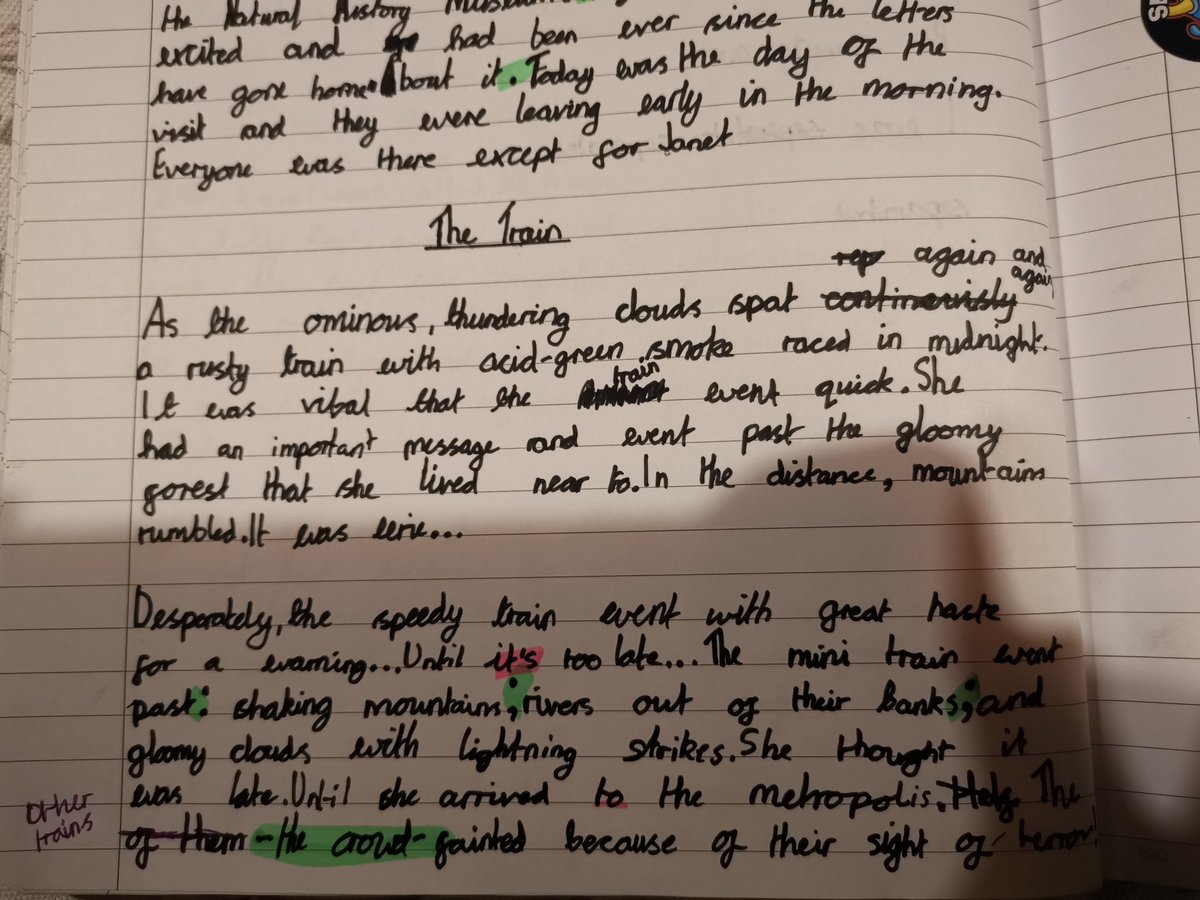 the Natural History
excited and had been ever since the letters
have gone home about it. Today was the day of the
visit and they were leaving early in the morning.
Everyone was there except for Janet
The Train
again and
again
As the ominous, thundering clouds spat continuously
a rusty train with acid-green smoke raced in midnight.
train
It was vital that the went quick. She
had an important message and went past the gloomy
forest that she lived near to. In the distance, mountains
rumbled. It was eerie...
Desperately, the speedy train went with great haste
for a warning... Until it's too late... The mini train went
past: shaking mountains; rivers out of their banks; and
gloomy clouds with lightning strikes. She thought it
was late. Until she arrived to the metropolis. The
other
trains
of them - the crowd - fainted because of their sight of terror.
520